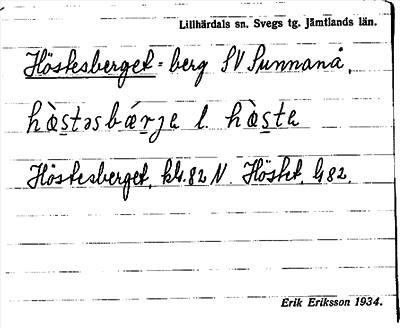 Lillhärdals sn. Svegs tg. Jämtlands län.
Höstesberget = berg SV Sunnanå,
hòstəsbǽrje l. hòste
Höstesberget, kb. 82 N. Höstet, G 82.
Erik Eriksson 1934.